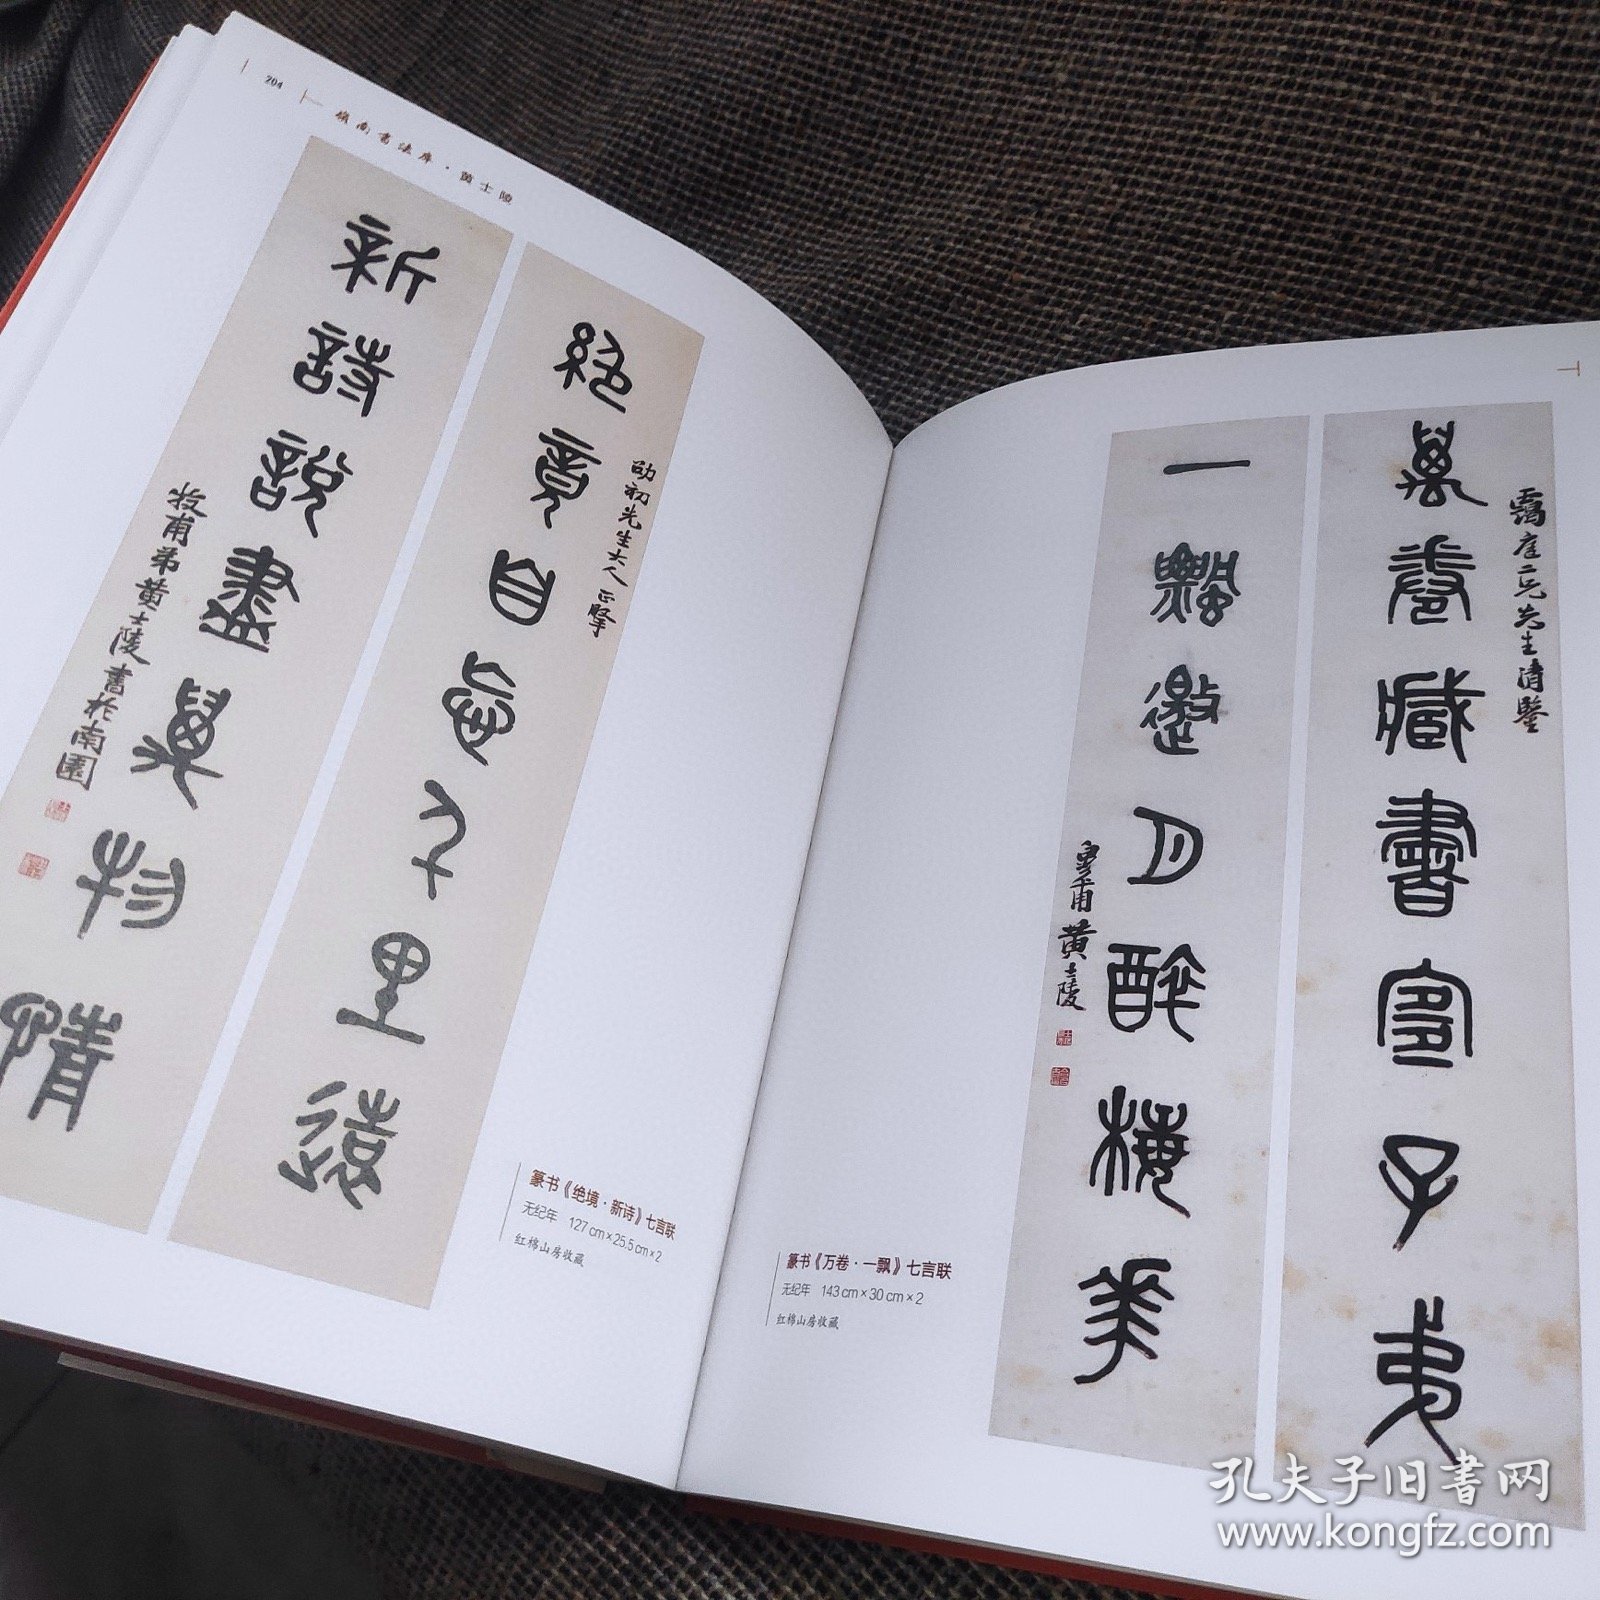 204
嶺南書法庫·黄士陵
劭初先生大人正
絕竟自忘千里遠
新詩說盡萬物情
牧甫弟黄士陵書於南園
篆书《绝境·新诗》七言联
无纪年 127 cm×25.5 cm×2
红棉山房收藏
靄崖二兄先生清鑒
萬卷藏書宜子弟
一瓢邀月醉梅花
穆甫黄士陵
篆书《万卷·一飘》七言联
无纪年 143 cm×30 cm×2
红棉山房收藏
孔夫子旧书网
www.kongfz.com